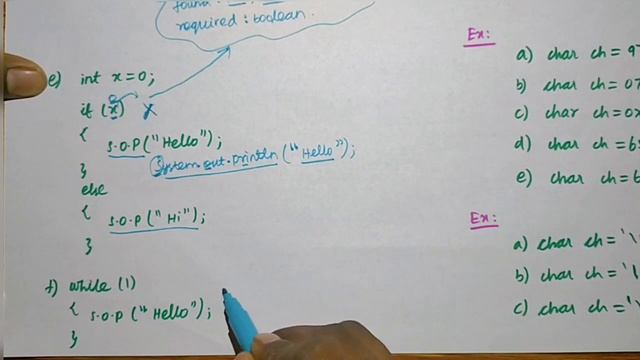 required : boolean.
e) int x=0;
if (x) x
{
S.O.P("Hello");
System.out.println ("Hello");
}
else
{
S.O.P ("Hi");
}
f) while (1)
{ S.O.P ("Hello");
}
Ex:
a) char ch = 97
b) char ch = 07
c) char ch = 0x
d) char ch = 65
e) char ch = 6
Ex:
a) char ch = '\
b) char ch = '\
c) char ch = '\